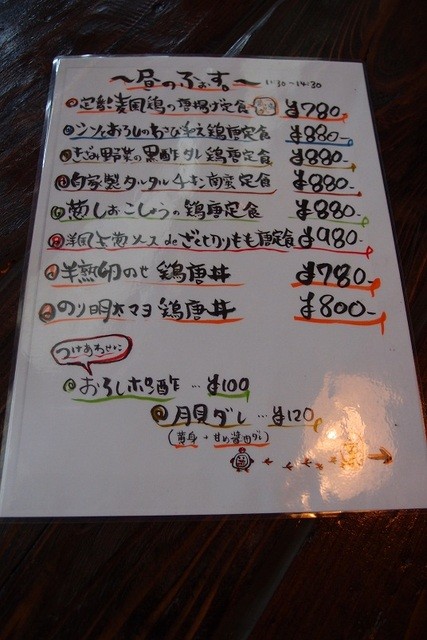 ～昼のふぉす。～ 11:30～14:30
定番!麦風鶏の唐揚げ定食 ¥780-
シソおろしのわさび和え鶏唐定食 ¥880-
きざみ野菜の黒酢タレ鶏唐定食 ¥880-
自家製タルタルチキン南蛮定食 ¥880-
葱しおこしょうの鶏唐定食 ¥880-
洋風玉葱ソースdeざく切りもも唐定食 ¥980-
半熟卵のせ鶏唐丼 ¥780-
のり明太マヨ鶏唐丼 ¥800-
つけあわせに
おろしポン酢 … ¥100
月見ダレ … ¥120
(黄身+甘め醤油ダレ)